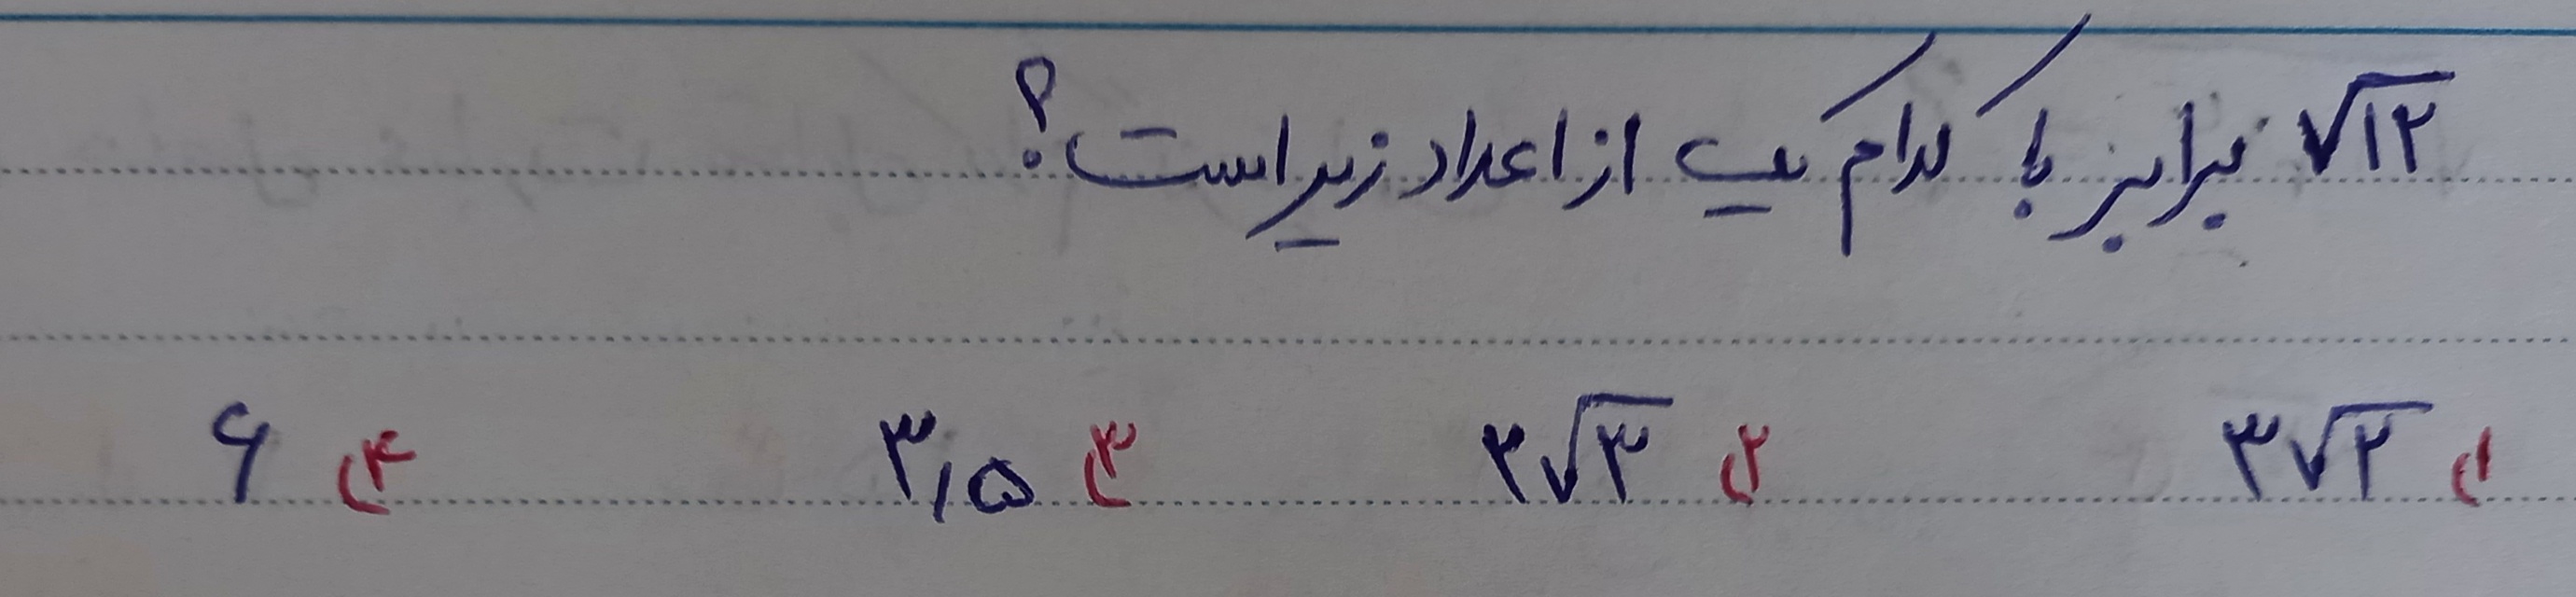 √۱۲ برابر با کدام یک از اعداد زیر است؟
۱) ۳√۲ ۲) ۲√۳ ۳) ۳٫۵ ۴) ۶